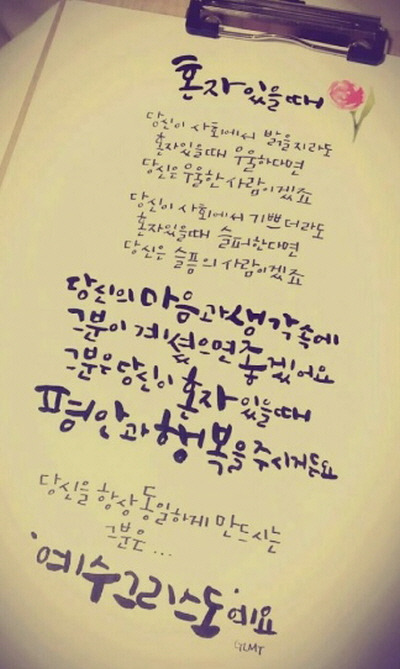 혼자 있을 때
당신이 사회에서 밝을지라도
혼자있을때 우울하다면
당신은 우울한 사람이겠죠
당신이 사회에서 기쁘더라도
혼자있을때 슬퍼한다면
당신은 슬픔의 사람이겠죠
당신의 마음과 생각속에
그분이 계셨으면 좋겠어요
그분은 당신이 혼자 있을때
평안과 행복을 주시거든요
당신을 항상 동일하게 만드시는
그분은...
'예수그리스도'예요